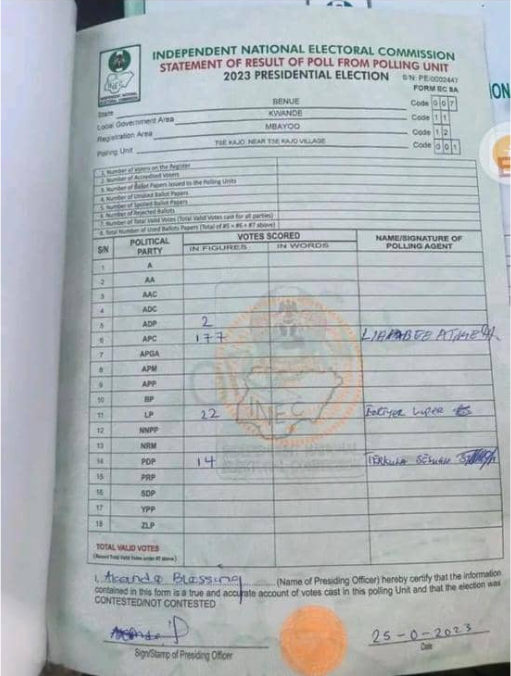 INDEPENDENT NATIONAL ELECTORAL COMMISSION
STATEMENT OF RESULT OF POLL FROM POLLING UNIT
2023 PRESIDENTIAL ELECTION S/N: PE/0002447
FORM EC 8A
State BENUE Code 007
Local Government Area KWANDE Code 11
Registration Area MBAYOO Code 12
Polling Unit TSE KAJO: NEAR TSE KAJO VILLAGE Code 001
1. Number of Voters on the Register
2. Number of Accredited Voters
3. Number of Ballot Papers Issued to the Polling Units
4. Number of Unused Ballot Papers
5. Number of Spoiled Ballot Papers
6. Number of Rejected Ballots
7. Number of Total Valid Votes (Total Valid Votes cast for all parties)
8. Total Number of Used Ballots Papers (Total of #5 + #6 + #7 above)
SN POLITICAL PARTY VOTES SCORED NAME/SIGNATURE OF POLLING AGENT
IN FIGURES IN WORDS
1 A
2 AA
3 AAC
4 ADC
5 ADP 2
6 APC 177
7 APGA
8 APM
9 APP
10 BP
11 LP 22
12 NNPP
13 NRM
14 PDP 14 TERKULA
15 PRP
16 SDP
17 YPP
18 ZLP
TOTAL VALID VOTES
1. Akande Blessing (Name of Presiding Officer) hereby certify that the information
contained in this form is a true and accurate account of votes cast in this polling Unit and that the election was
CONTESTED/NOT CONTESTED
25-0-2023
Sign/Stamp of Presiding Officer Date
INEC
ON